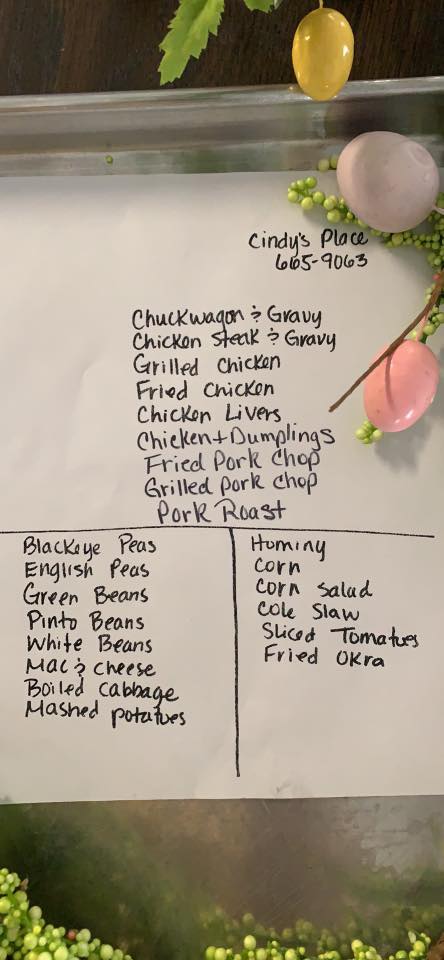 Cindy's Place
665-9063
Chuckwagon & Gravy
Chicken Steak & Gravy
Grilled Chicken
Fried Chicken
Chicken Livers
Chicken + Dumplings
Fried Pork Chop
Grilled Pork Chop
Pork Roast
Blackeye Peas
English Peas
Green Beans
Pinto Beans
White Beans
Mac & Cheese
Boiled Cabbage
Mashed potatoes
Hominy
Corn
Corn Salad
Cole Slaw
Sliced Tomatoes
Fried Okra